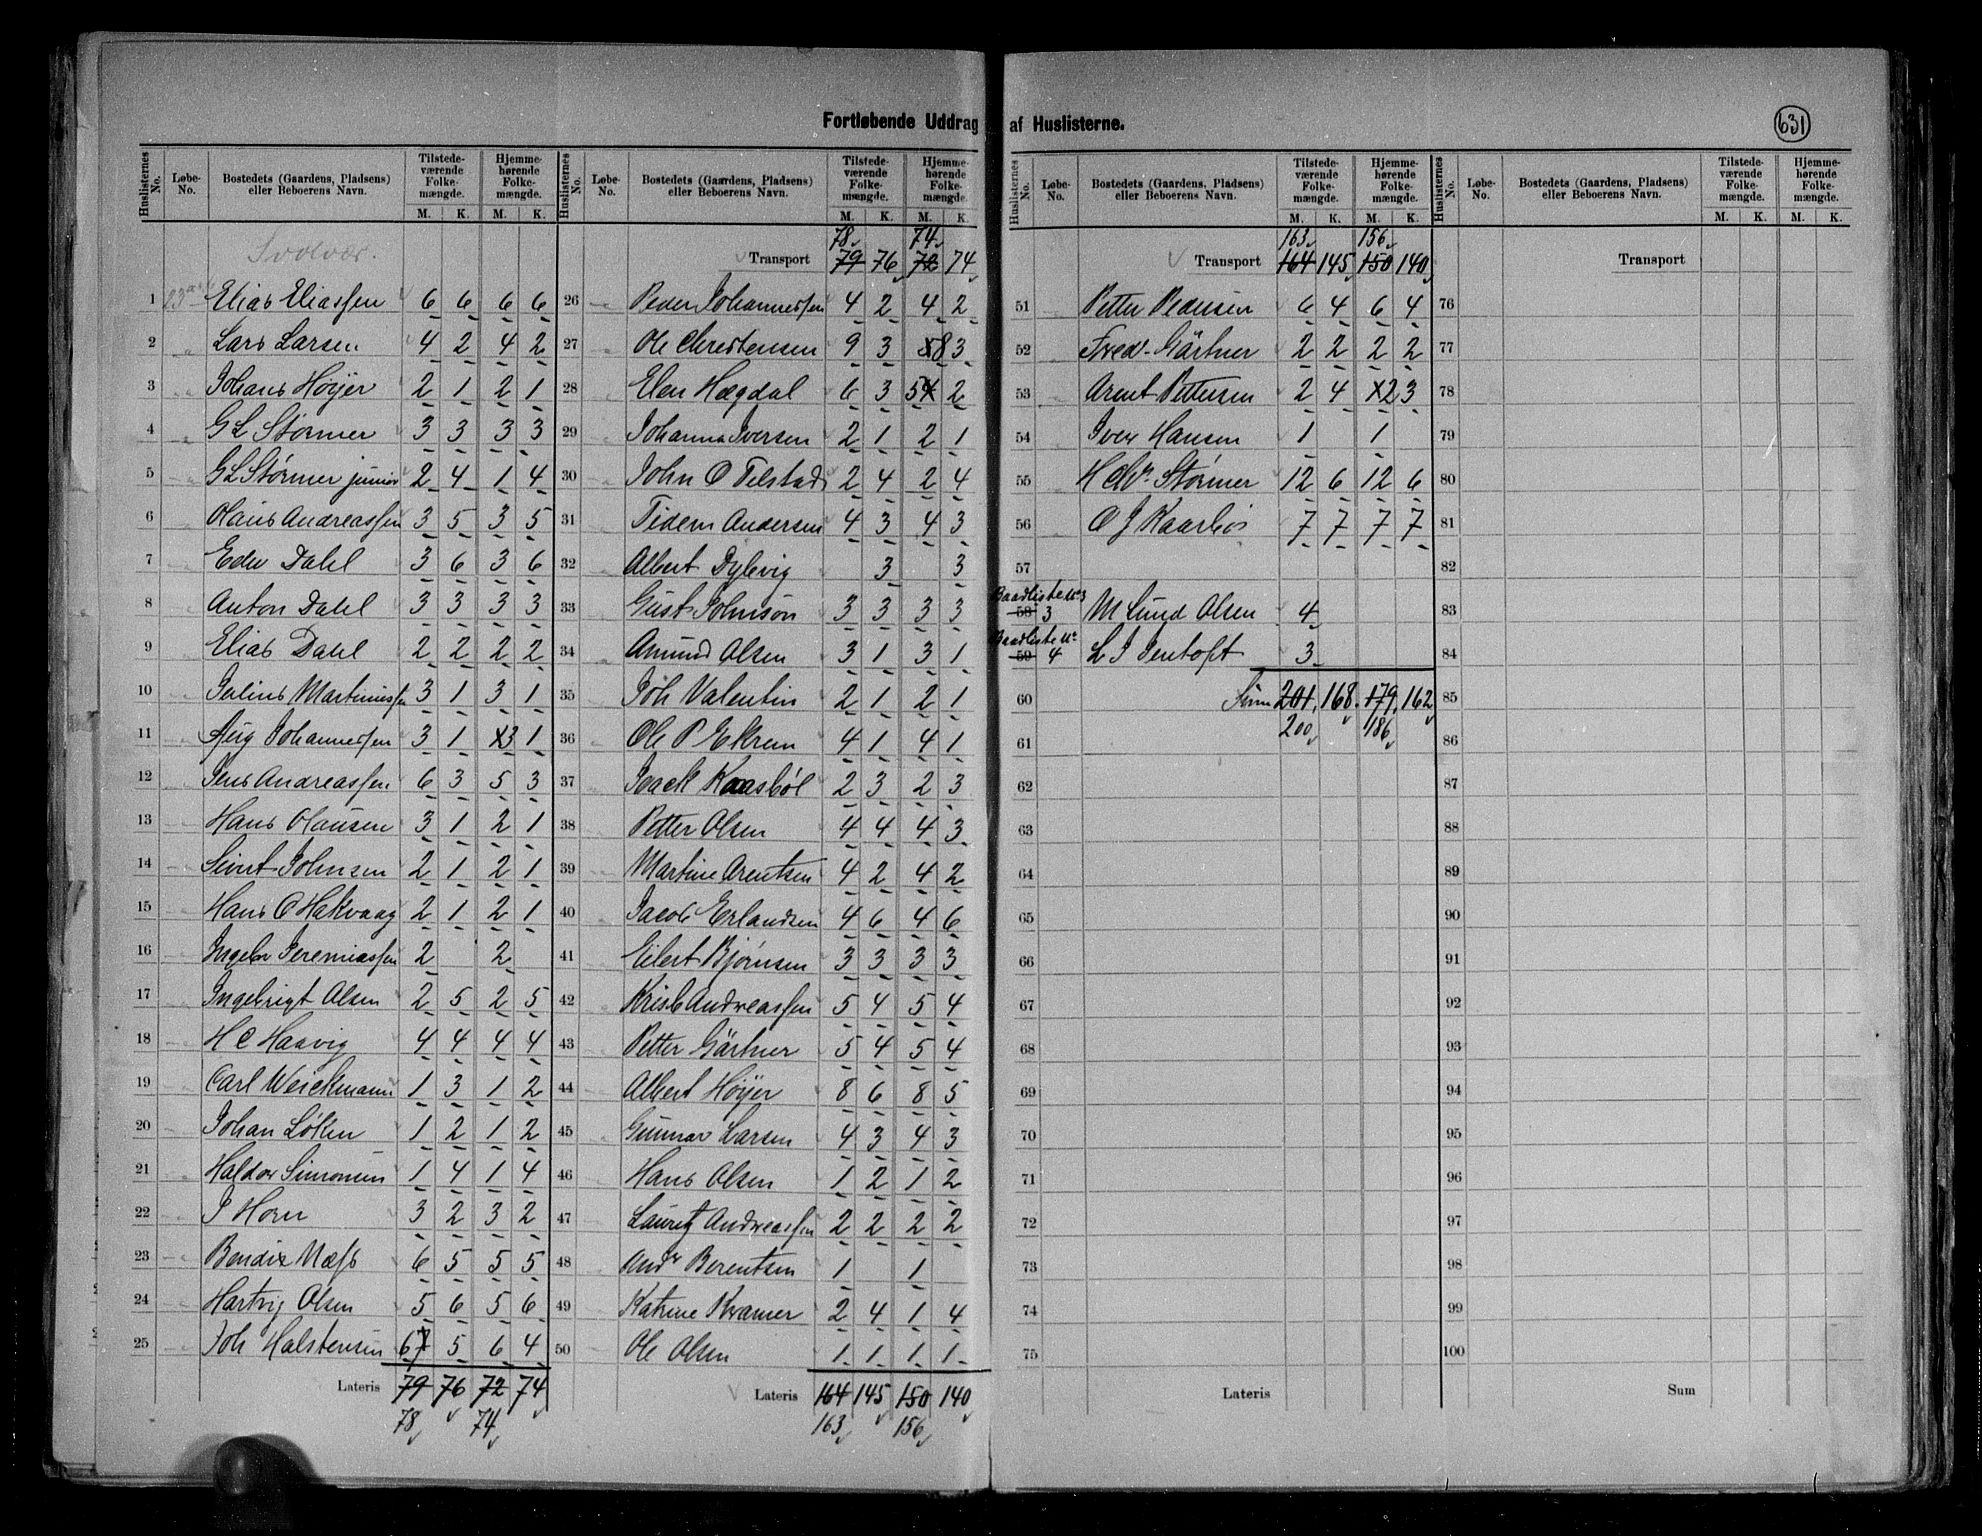 Fortløbende Uddrag af Huslisterne.
631
Huslisternes No. Løbe-No. Bostedets (Gaardens, Pladsens) eller Beboerens Navn. Tilstedeværende Folkemængde. M. K. Hjemmehørende Folkemængde. M. K.
Svolvær.
1 23 Elias Eliassen 6 6 6 6
2 " Lars Larsen 4 2 4 2
3 " Johans Høyer 2 1 2 1
4 " G L Størmer 3 3 3 3
5 " G L Størmer junior 2 4 1 4
6 " Olaus Andreassen 3 5 3 5
7 " Eder Dahl 3 6 3 6
8 " Anton Dahl 3 3 3 3
9 " Elias Dahl 2 2 2 2
10 " Julius Martinussen 3 1 3 1
11 " Aug Johannessen 3 1 3 1
12 " Jens Andreassen 6 3 5 3
13 " Hans Olausen 3 1 2 1
14 " Sivert Johnsen 2 1 2 1
15 " Hans C Hakvaag 2 1 2 1
16 " Ingebr Jeremiassen 2 2
17 " Ingebrigt Olsen 2 5 2 5
18 " H C Haavig 4 4 4 4
19 " Carl Weickmann 1 3 1 2
20 " Johan Løken 1 2 1 2
21 " Haldor Simonsen 1 4 1 4
22 " J Horn 3 2 3 2
23 " Bendix Næss 6 5 5 5
24 " Hartvig Olsen 5 6 5 6
25 " Joh Halstensen 6 7 5 6 4
Lateris 79 76 72 74
78 74
Huslisternes No. Løbe-No. Bostedets (Gaardens, Pladsens) eller Beboerens Navn. Tilstedeværende Folkemængde. M. K. Hjemmehørende Folkemængde. M. K.
78 74
Transport 79 76 72 74
26 " Peder Johannessen 4 2 4 2
27 " Ole Christensen 9 3 8 3
28 " Elen Hægdal 6 3 5 4 2
29 " Johanna Iversen 2 1 2 1
30 " John O Tilstad 2 4 2 4
31 " Tidem Andersen 4 3 4 3
32 " Albert Dybvig 3 3
33 " Gust Johnson 3 3 3 3
34 " Amund Olsen 3 1 3 1
35 " Joh Valentin 2 1 2 1
36 " Ole P Ekrem 4 1 4 1
37 " Isack Kaasbøl 2 3 2 3
38 " Petter Olsen 4 4 4 3
39 " Martine Arentsen 4 2 4 2
40 " Jacob Erlandsen 4 6 4 6
41 " Eilert Bjørnsen 3 3 3 3
42 " Krist Andreassen 5 4 5 4
43 " Petter Gärtner 5 4 5 4
44 " Albert Høyer 8 6 8 5
45 " Gunnar Larsen 4 3 4 3
46 " Hans Olsen 1 2 1 2
47 " Lauritz Andreassen 2 2 2 2
48 " Andr Berentsen 1 1
49 " Katrine Kramer 2 4 1 4
50 Ole Olsen 1 1 1 1
Lateris 164 145 150 140
163 156
Huslisternes No. Løbe-No. Bostedets (Gaardens, Pladsens) eller Beboerens Navn. Tilstedeværende Folkemængde. M. K. Hjemmehørende Folkemængde. M. K.
163 156
Transport 164 145 150 140
51 " Petter Pedersen 6 4 6 4
52 " Fred. Gärtner 2 2 2 2
53 " Arent Pettersen 2 4 2 3
54 " Iver Hansen 1 1
55 " H Chr Størmer 12 6 12 6
56 " O J Kaarbø 7 7 7 7
57
Baadliste No 3
58 3 M Lund Olsen 4
Baadliste No
59 4 L J Jentoft 3
60 Sum 201 168 179 162
61 200 186
62
63
64
65
66
67
68
69
70
71
72
73
74
75
Lateris
Huslisternes No. Løbe-No. Bostedets (Gaardens, Pladsens) eller Beboerens Navn. Tilstedeværende Folkemængde. M. K. Hjemmehørende Folkemængde. M. K.
Transport
76
77
78
79
80
81
82
83
84
85
86
87
88
89
90
91
92
93
94
95
96
97
98
99
100
Sum